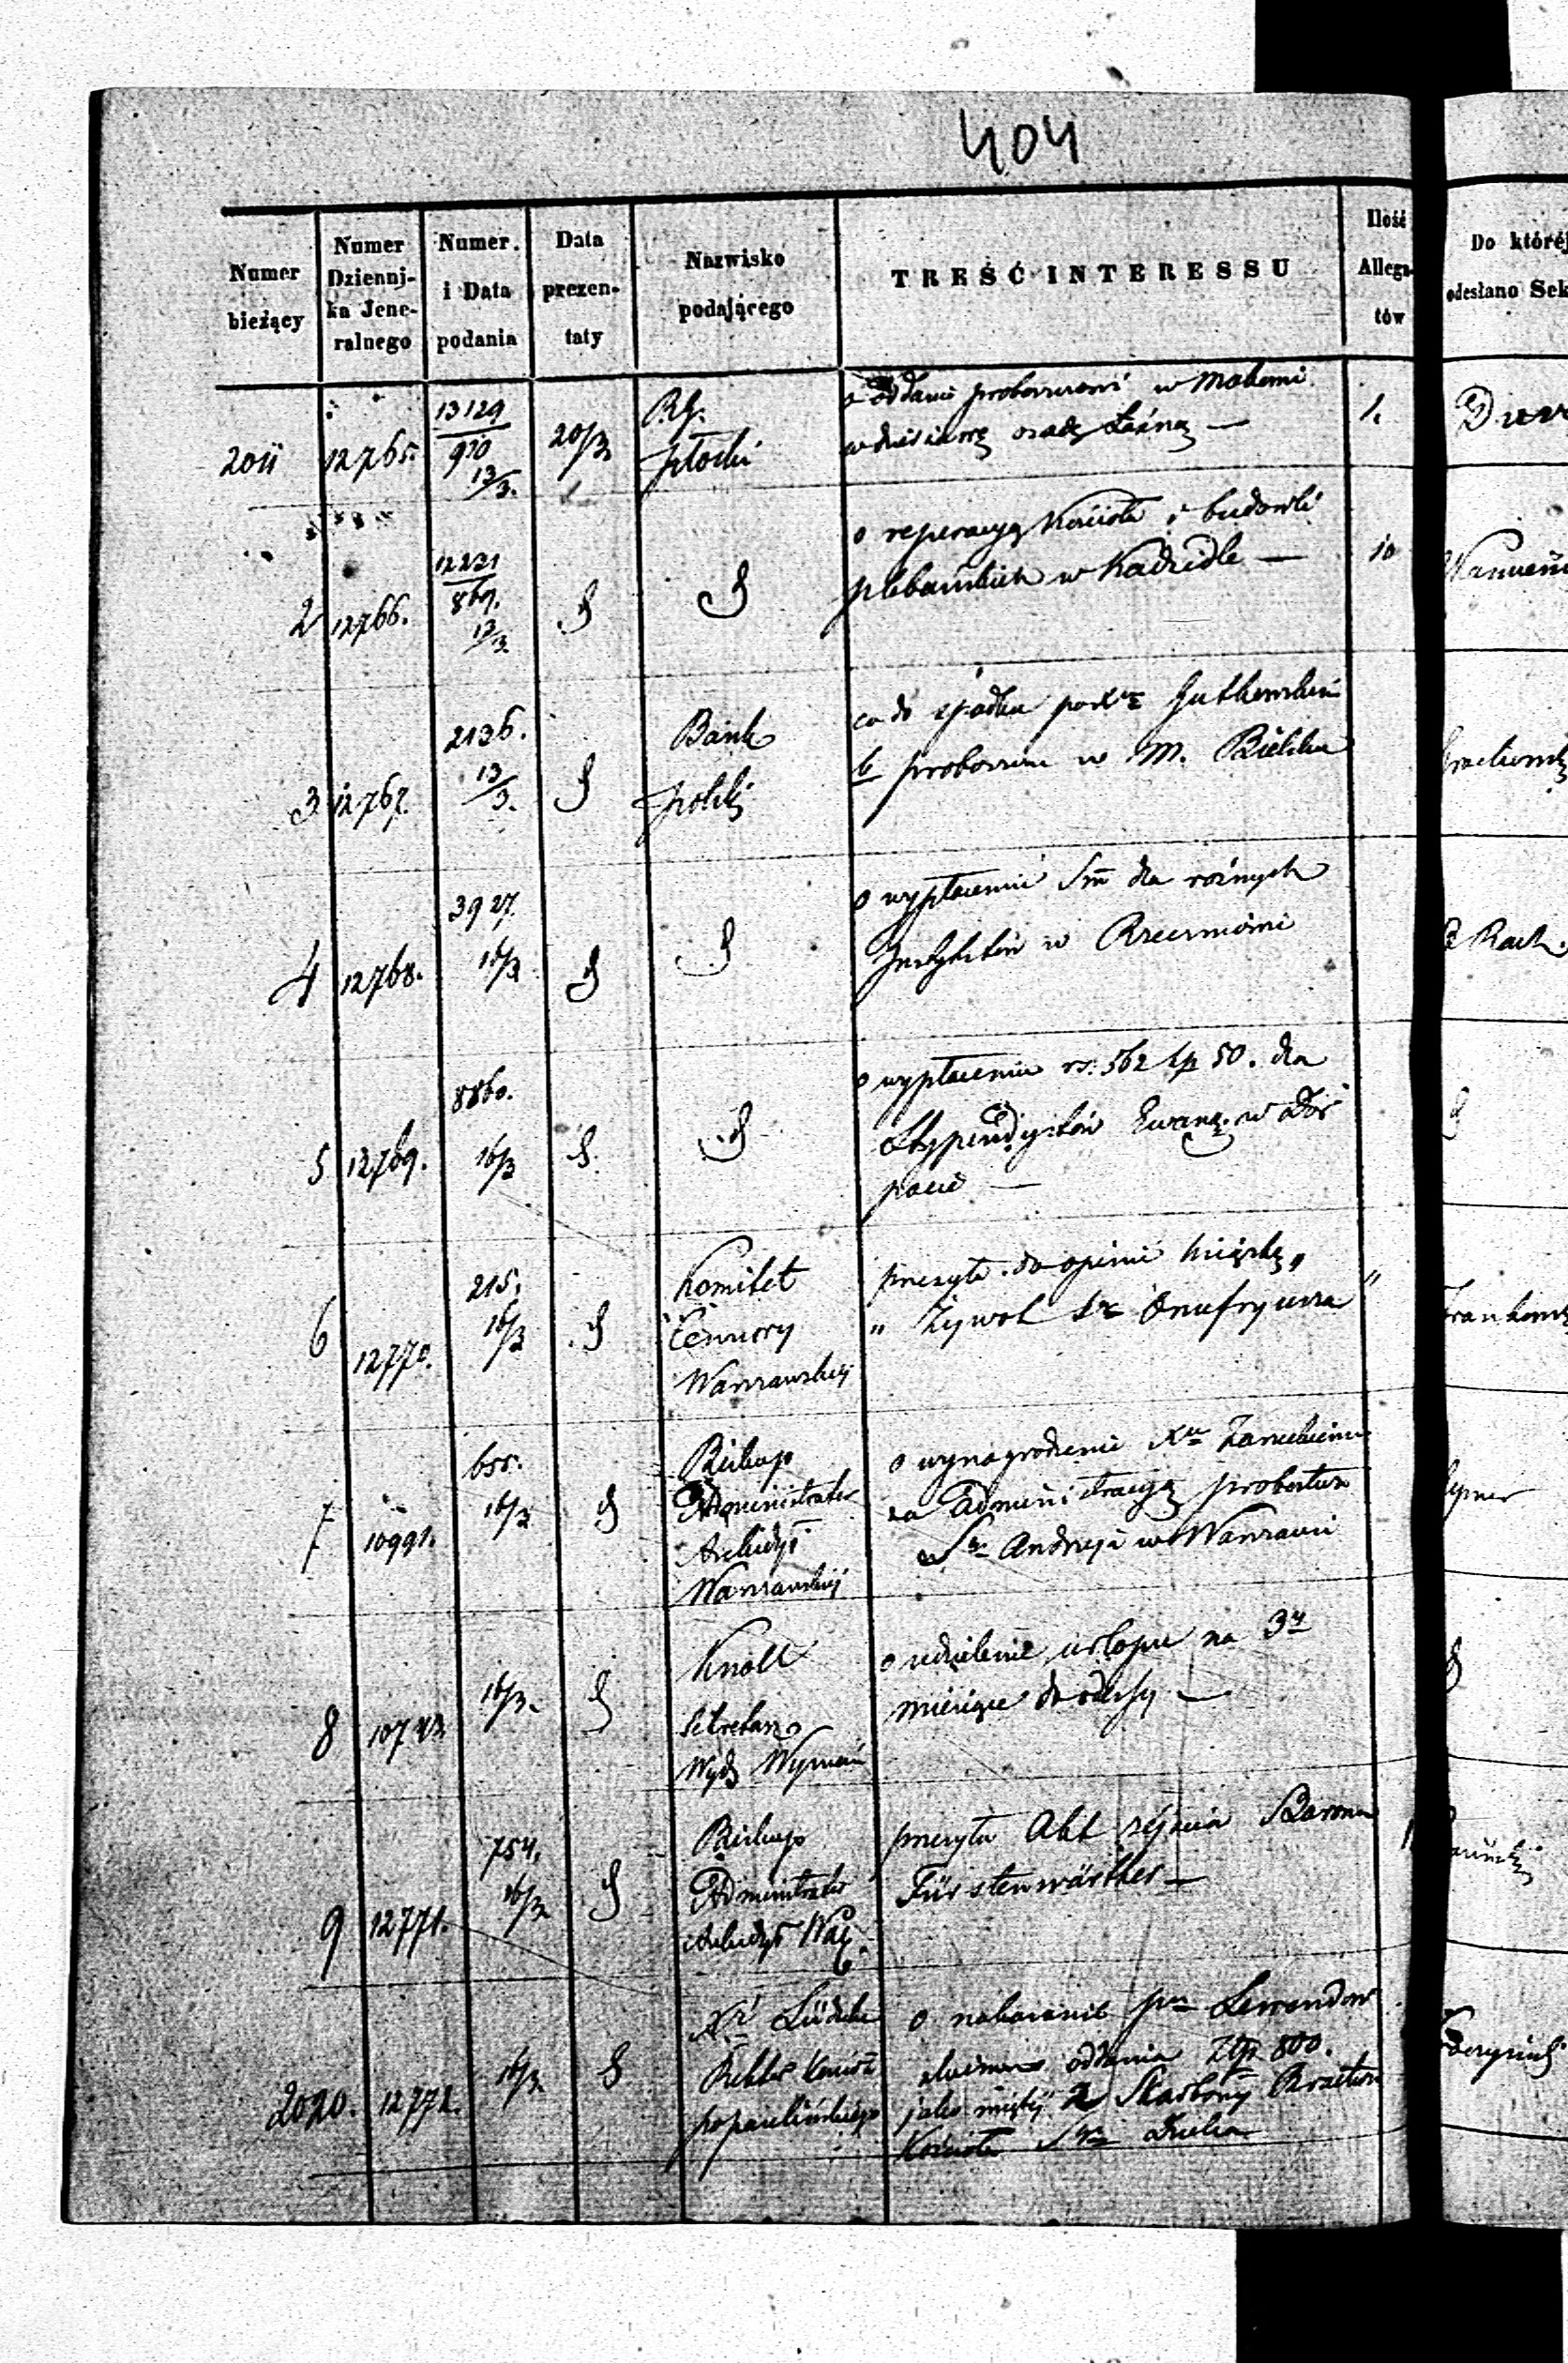 404
Numer bieżący
Numer Dzienni-ka Jene-ralnego
Numer i Data podania
Data prezen-taty
Nazwisko podającego
TREŚĆ INTERESSU
Ilość Allega-tów
Do któréj odesłano Sek
2011 12765. 13129/970 13/3. 20/3 R.G. płocki
o oddanie proboszczowi w Makowie
w dzierżawę osadę Leśną — 1.
2 12766. 12221/869. 13/3.
o reperacyą Kościoła i budowli
plebańskich w Kadzidle — 10
3 12767. 2136. 13/3. Bank polski
co do spadku po Xdz Gutkowskim
b proboszczu w M. Bielsku
4 12768. 3927. 16/3
o wypłacenie Sm dla różnych
Instytutów w Rzeczmieni
5 12769. 8860. 16/3
o wypłacenie rs. 562 kp 50. dla
Stypendystów Ewang. w Dor
pacie —
6 12770. 215. 16/3
Komitet
Cenzury
Warszawskiej
przesyła do opinii książkę „
„ Żywot Sgo Onufryusza "
7 10991. 655. 16/3
Biskup
Administrator
Archidyi
Warszawskiej
o wynagrodzenie Xdzu Zarzeckiemu
za administracyą probostwa
Sgo Andrzeja w Warszawie
8 16/3.
Knoll
Sekretarz
Wydz Wyznań
o udzielenie urlopu na 3y
miesiące do Odessy —
9 12771. 754. 16/3
Biskup
Administrator
Archidyi War.
przesyła Akt zejścia Barona
Fürstenwärther —
2020. 12772. 16/3.
Rektor Kościoła
popaulińskiego
o nakazanie pu Lewandow
skiemu oddania Złp 800.
jako wziętej z Skarbony Bractwa
Kościoła Sgo Ducha